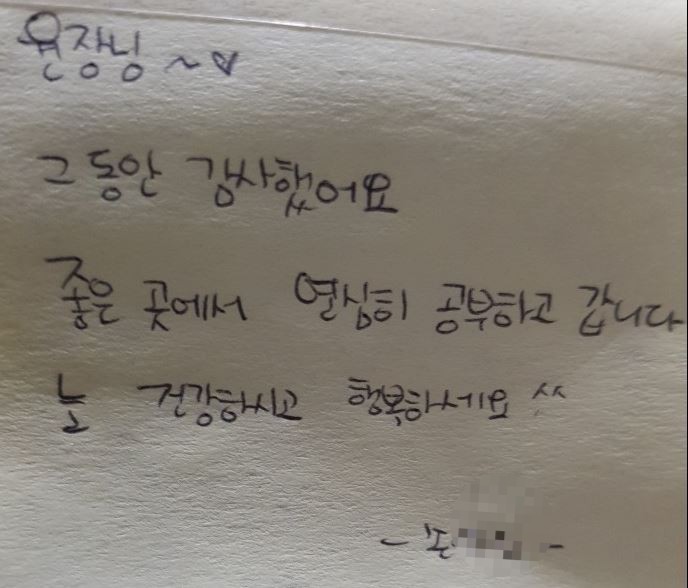 원장님 ~♡
그동안 감사했어요
좋은 곳에서 열심히 공부하고 갑니다
늘 건강하시고 행복하세요 ^^